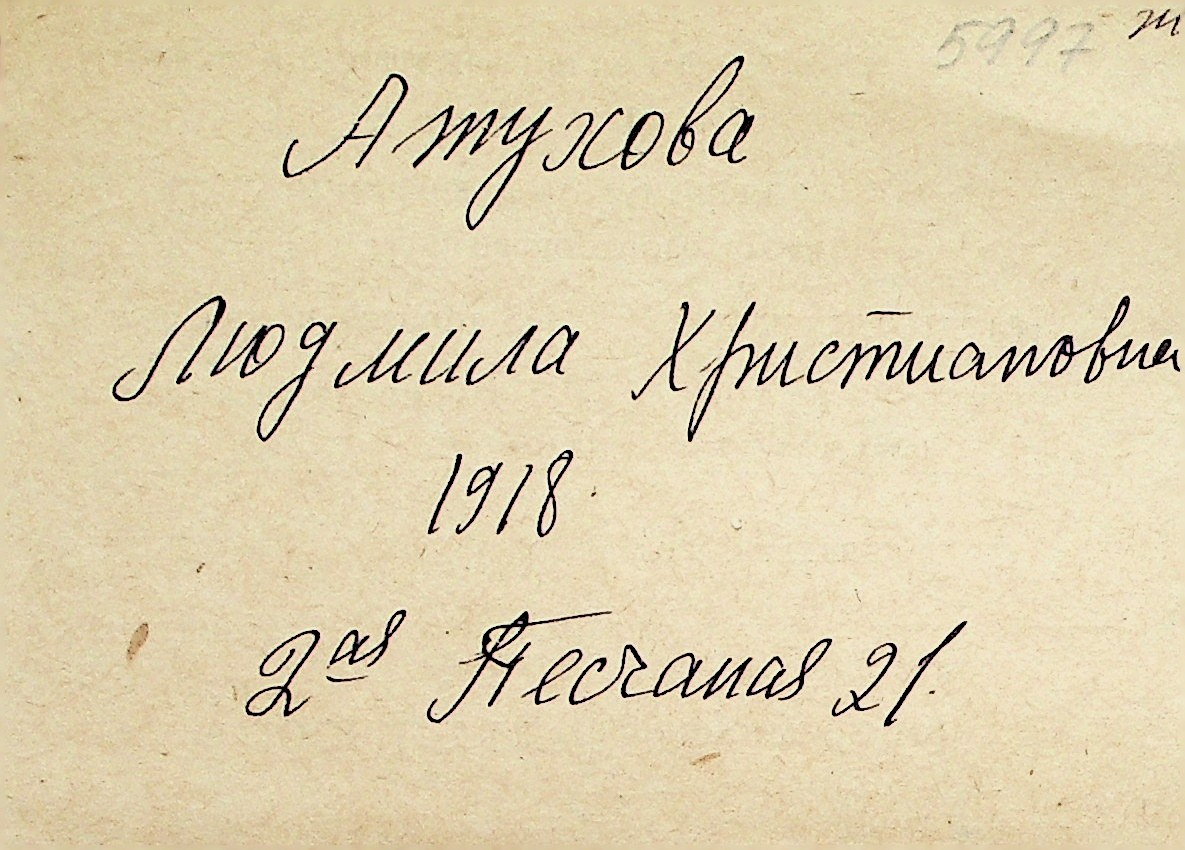 5997 т
Атухова
Людмила Христиановна
1918.
2ая Песчаная 21.